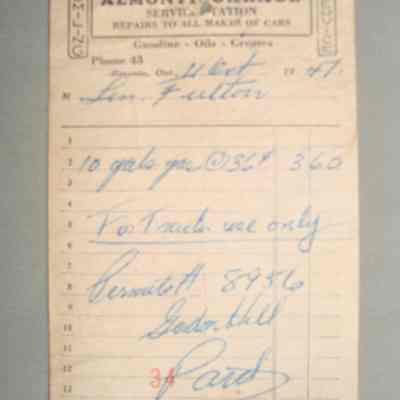 ALMONTE GARAGE
SERVICE STATION
REPAIRS TO ALL MAKES OF CARS
Gasoline - Oils - Greases
Phone 43
Almonte, Ont., 4 Oct 1947
M Len. Fulton
1
2 10 gals gas @ 36¢ 3 60
3
4
5 For Truck use only
6
7
8 Permit # 8956
9
10
11
12 34 Paid